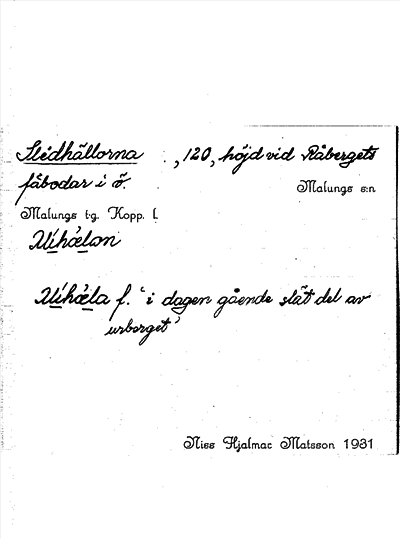 Slédhällorna , 120, höjd vid Råbergets
fåbodar i ö.
Malungs s:n
Malungs t:g. Kopp. l.
f. 'i dagen gående slät del av
urberget'
Niss Hjalmar Matsson 1931